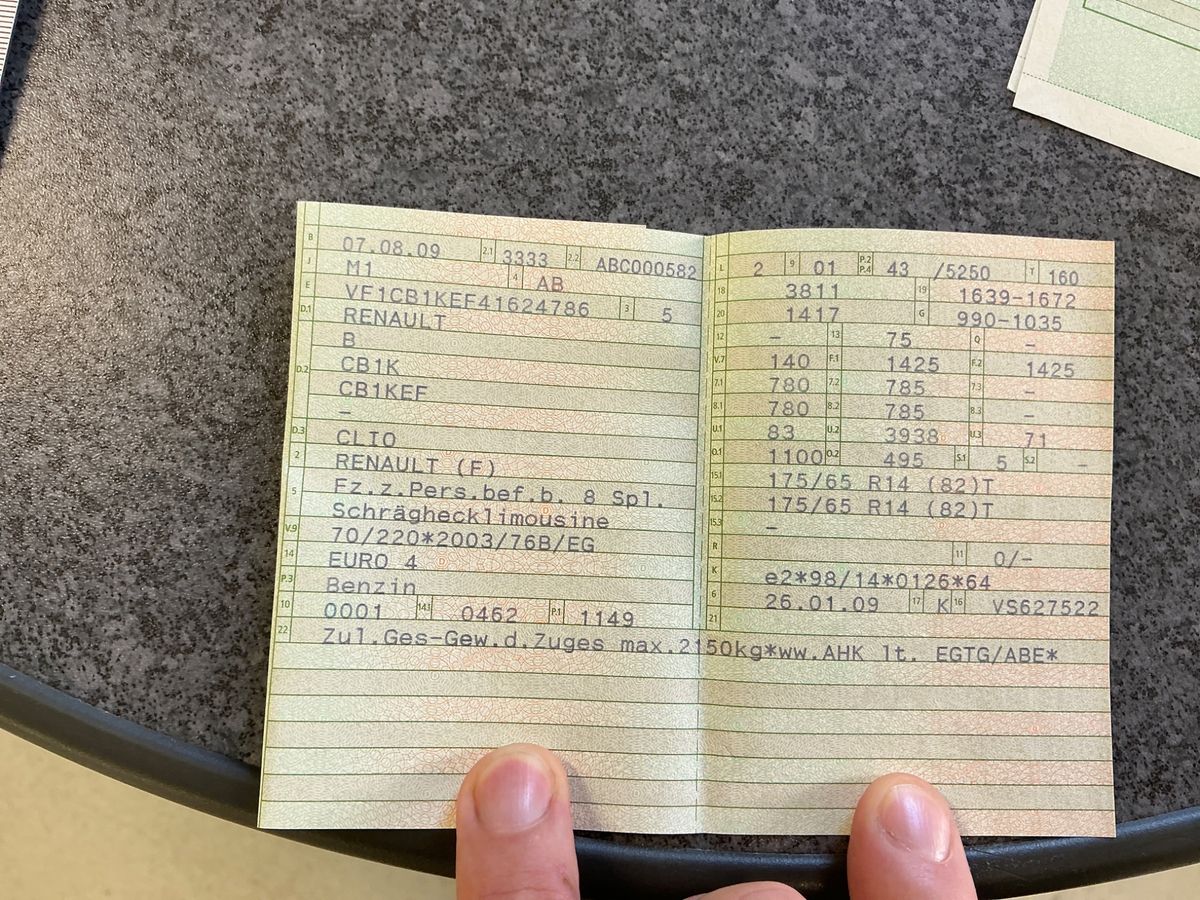 B 07.08.09 2.1 3333 2.2 ABC000582
J M1 4 AB
E VF1CB1KEF41624786 3 5
D.1 RENAULT
B
D.2 CB1K
CB1KEF
–
D.3 CLIO
2 RENAULT (F)
5 Fz.z.Pers.bef.b. 8 Spl.
Schräghecklimousine
V.9 70/220*2003/76B/EG
14 EURO 4
P.3 Benzin
10 0001 14.1 0462 P.1 1149
L 2 9 01 P.2 P.4 43 /5250 T 160
18 3811 19 1639-1672
20 1417 G 990-1035
12 – 13 75 Q –
V.7 140 F.1 1425 F.2 1425
7.1 780 7.2 785 7.3 –
8.1 780 8.2 785 8.3 –
U.1 83 U.2 3938 U.3 71
O.1 1100 O.2 495 S.1 5 S.2 –
15.1 175/65 R14 (82)T
15.2 175/65 R14 (82)T
15.3 –
R 11 0/-
K e2*98/14*0126*64
6 26.01.09 17 K 16 VS627522
21
22 Zul.Ges-Gew.d.Zuges max.2150kg*ww.AHK lt. EGTG/ABE*